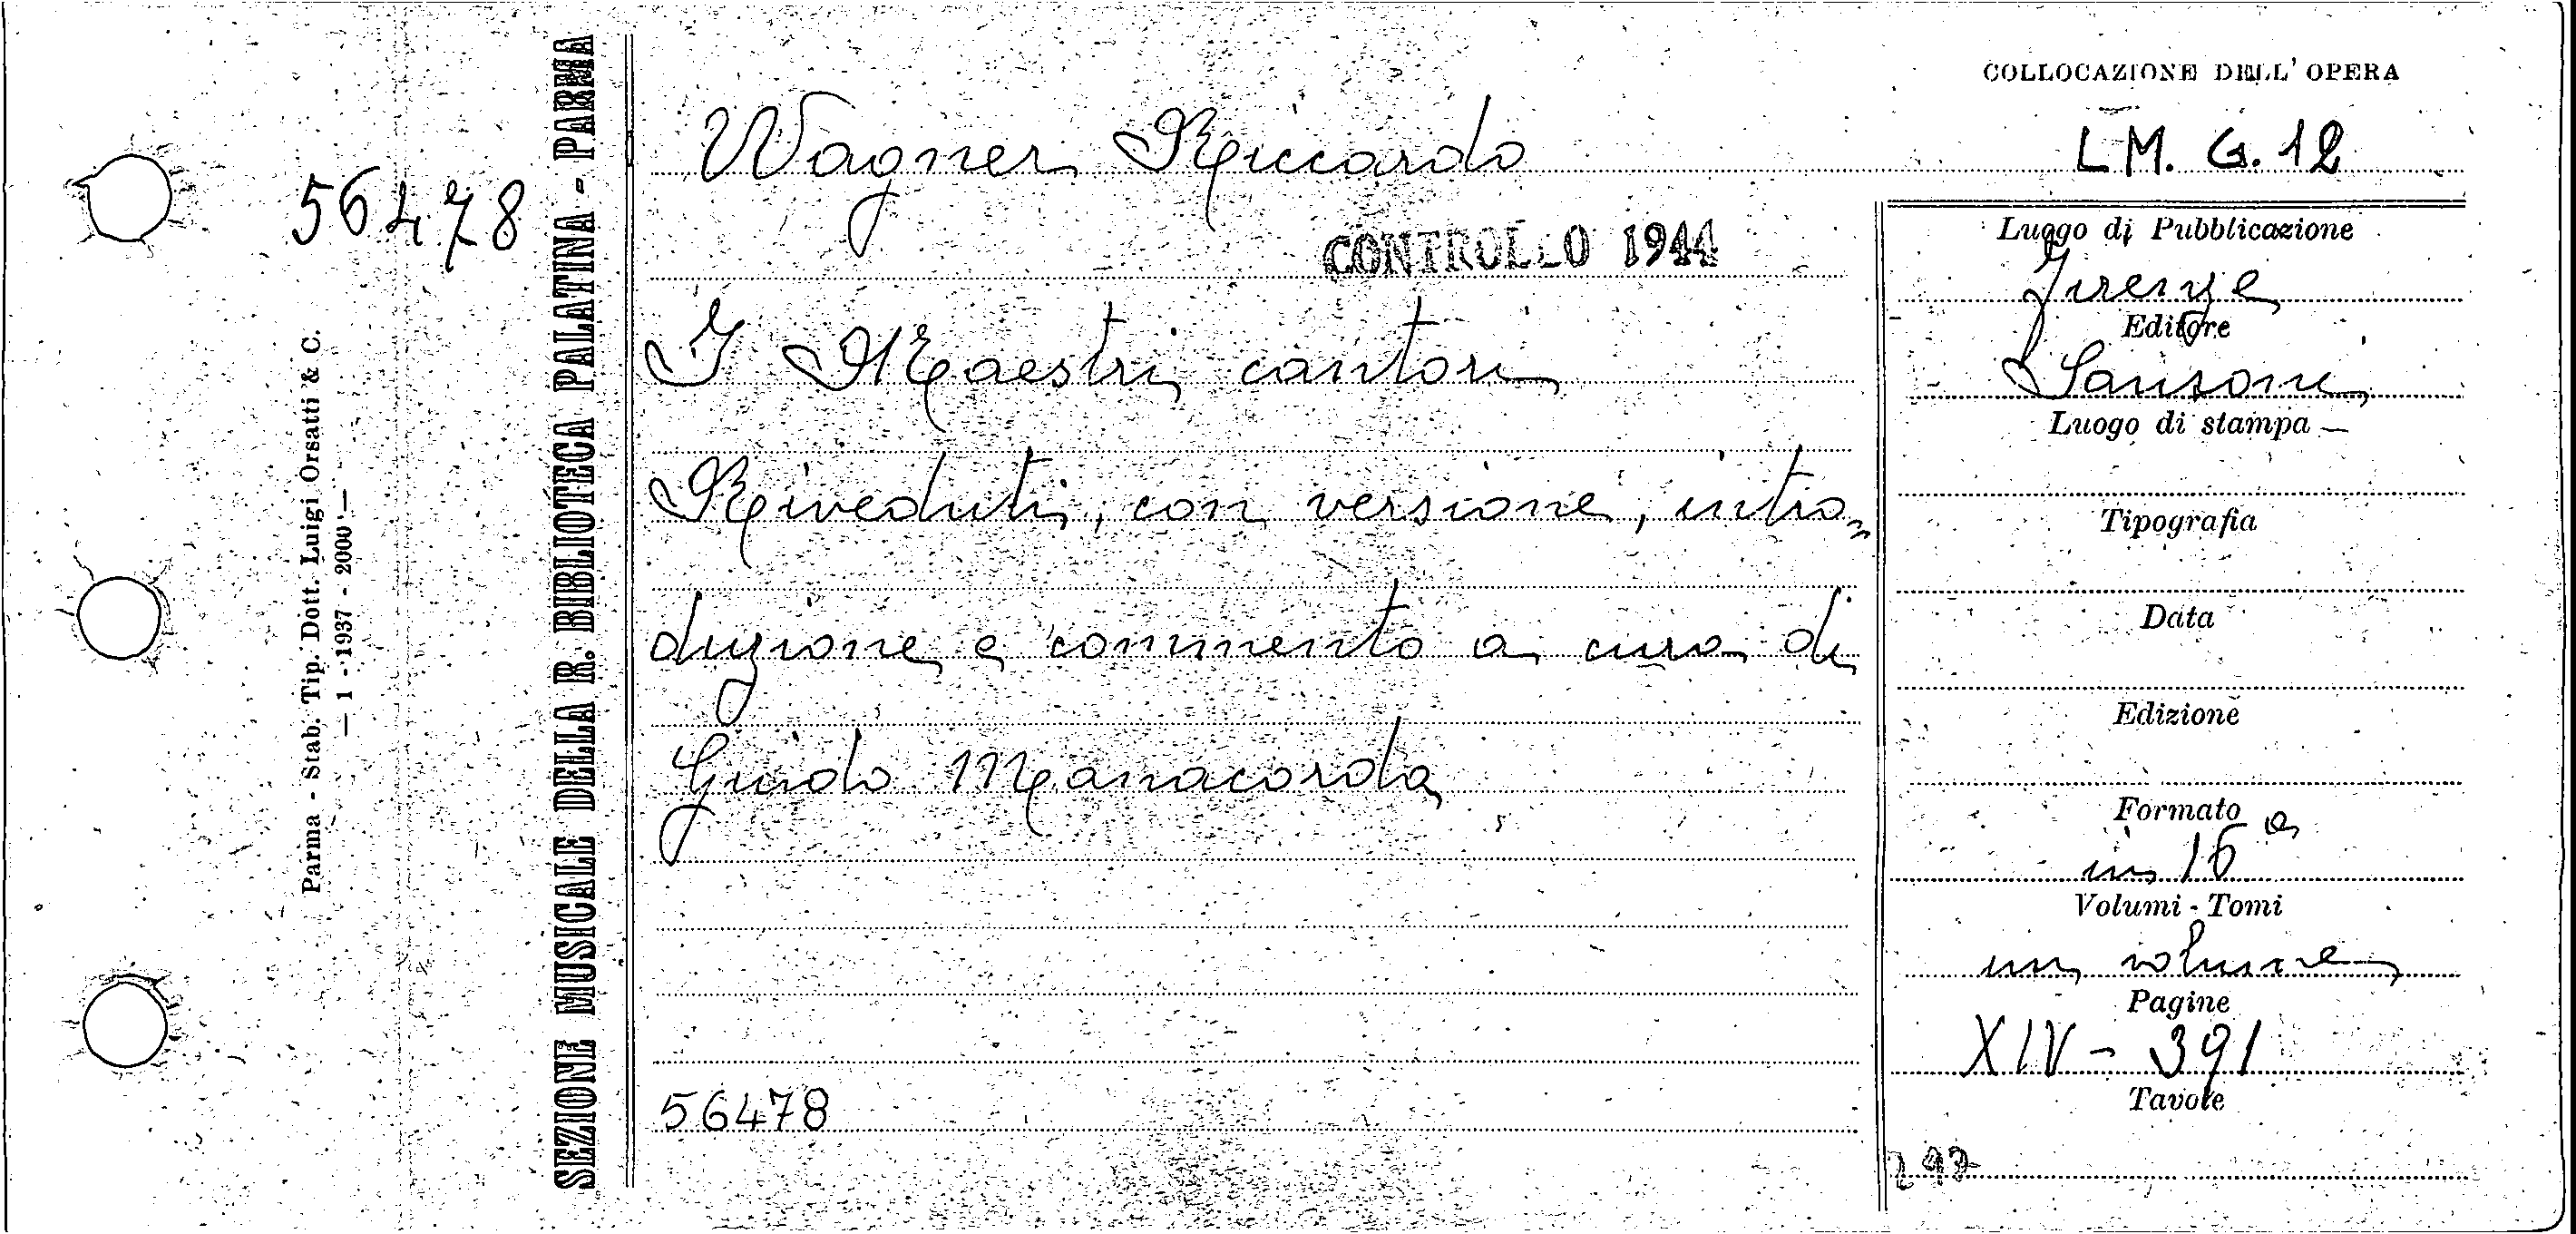 56478
Parma - Stab. Tip. Dott. Luigi Orsatti & C.
— 1 - 1937 - 2000 —
SEZIONE MUSICALE DELLA R. BIBLIOTECA PALATINA - PARMA
Wagner Riccardo
CONTROLLO 1944
I Maestri cantori
Riveduti, con versione, intro-
duzione e commento a cura di
Guido Manacorda
56478
COLLOCAZIONE DELL' OPERA
L M. G. 12
Luogo di Pubblicazione
Firenze
Editore
Sansoni
Luogo di stampa —
Tipografia
Data
Edizione
Formato
in 16°
Volumi - Tomi
un volume
Pagine
XIV - 391
Tavole